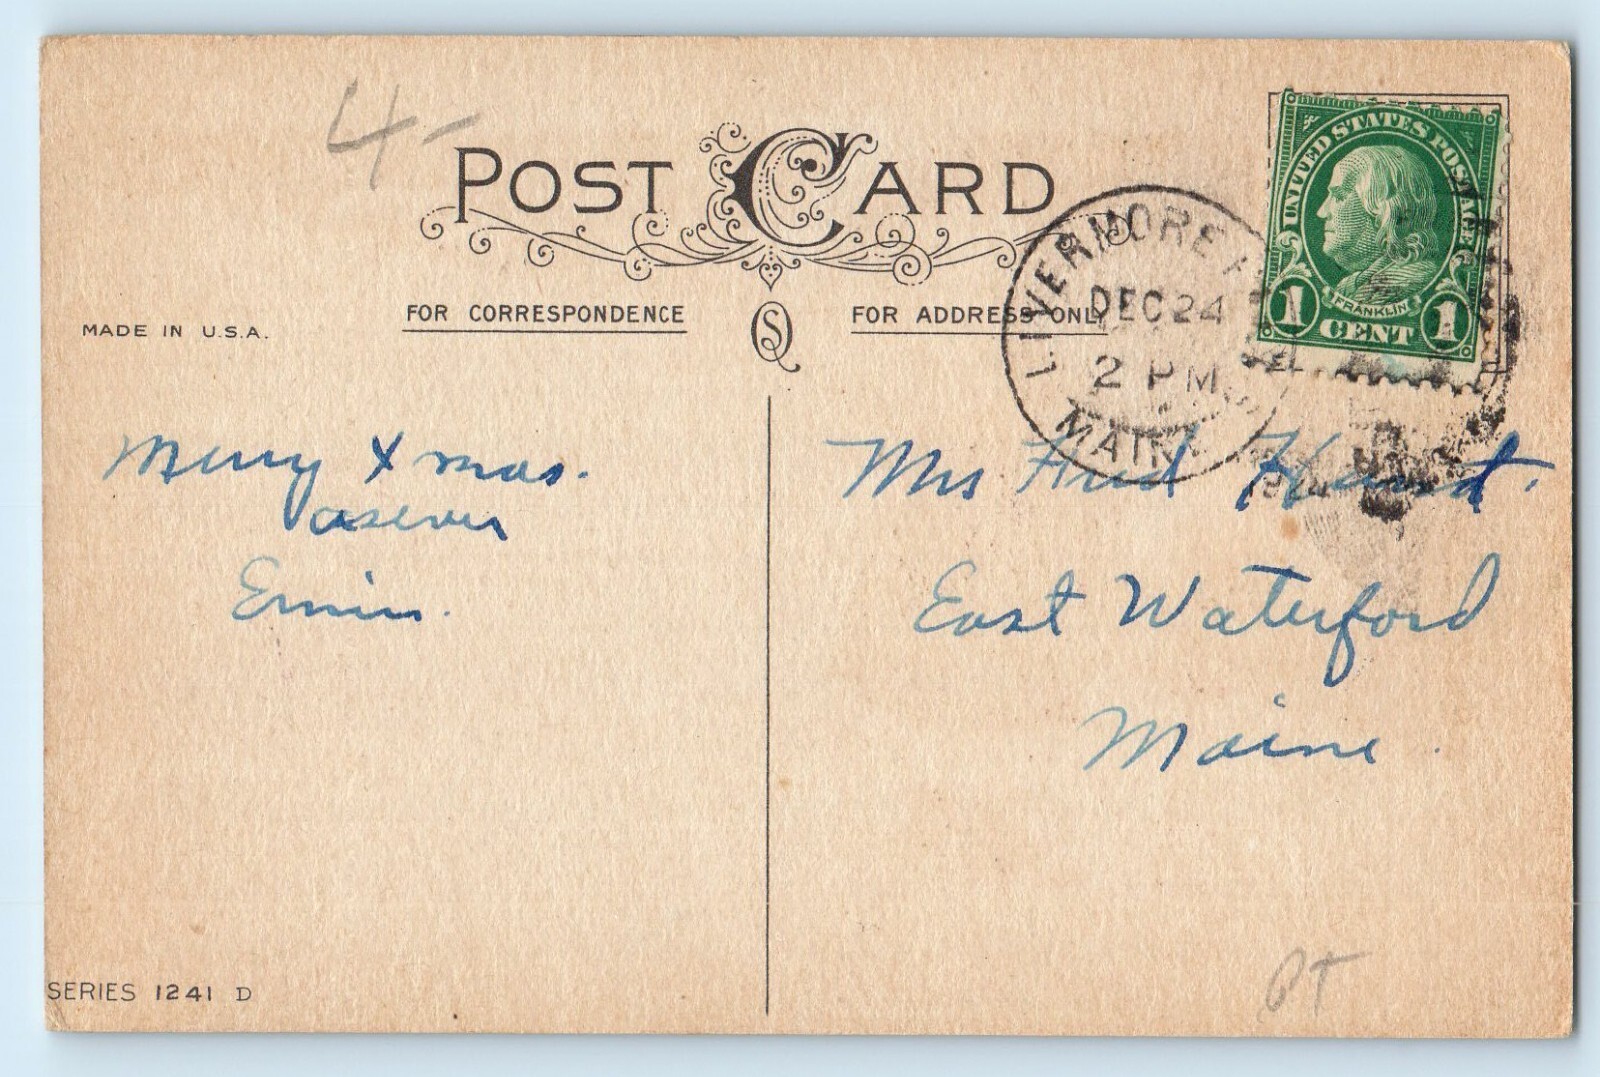 4-
POST CARD
UNITED STATES POSTAGE
FRANKLIN
1 CENT 1
LIVERMORE
DEC 24
2 PM
MAINE
MADE IN U.S.A.
FOR CORRESPONDENCE
FOR ADDRESS ONLY
Merry Xmas.
as ever
Mrs Fred
East Waterford
Maine.
SERIES 1241 D
PT